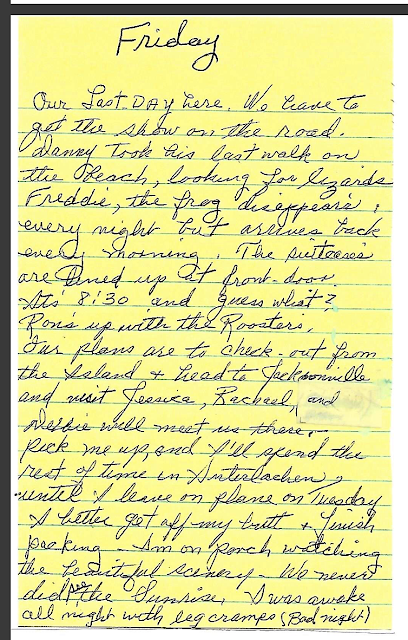 Friday
Our Last DAY here. We have to
get the show on the road.
Danny Took his last walk on
the Beach, looking for lizards
Freddie, the frog disappears,
every night but arrives back
every morning. The suitcases
are lined up at front-door.
Its 8:30 and guess what?
Ron's up with the Roosters.
Our plans are to check-out from
the Island & head to Jacksonville
and visit Jessica, Rachael, and
Debbie will meet us there.
Pick me up, and I'll spend the
rest of time in Interlachen,
until I leave on plane on Tuesday
I better get off my butt & finish
packing. Am on porch watching
the beautiful scenery - We never
did see the Sunrise, I was awake
all night with leg cramps (Bad night)